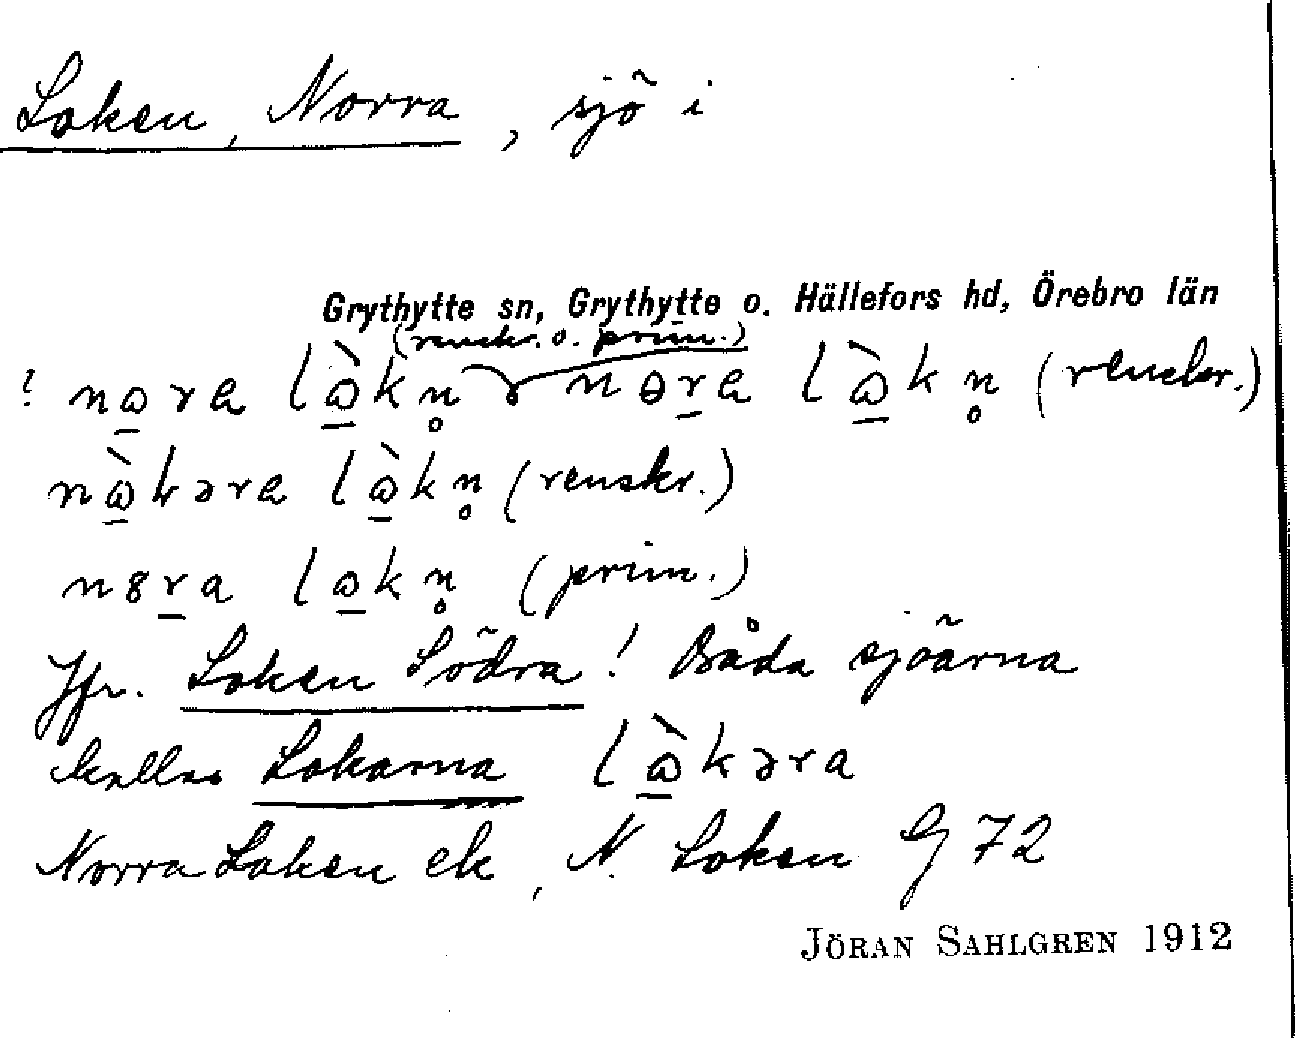 Loken, Norra, sjö i
Grythytte sn, Grythytte o. Hällefors hd, Örebro län
(renskr. o. prim.)
! nω̲ra lὼ̲kn̥ nɵr̲a lὼ̲kn̥ (renskr.)
nὼ̲kəra lὼ̲kn̥ (renskr.)
n8r̲a lω̲kn̥ (prim.)
Jfr. Loken Södra! Båda sjöarna
kallas Lokarna lὼ̲kəra
Norra Loken ek, N. Loken G 72
JÖRAN SAHLGREN 1912